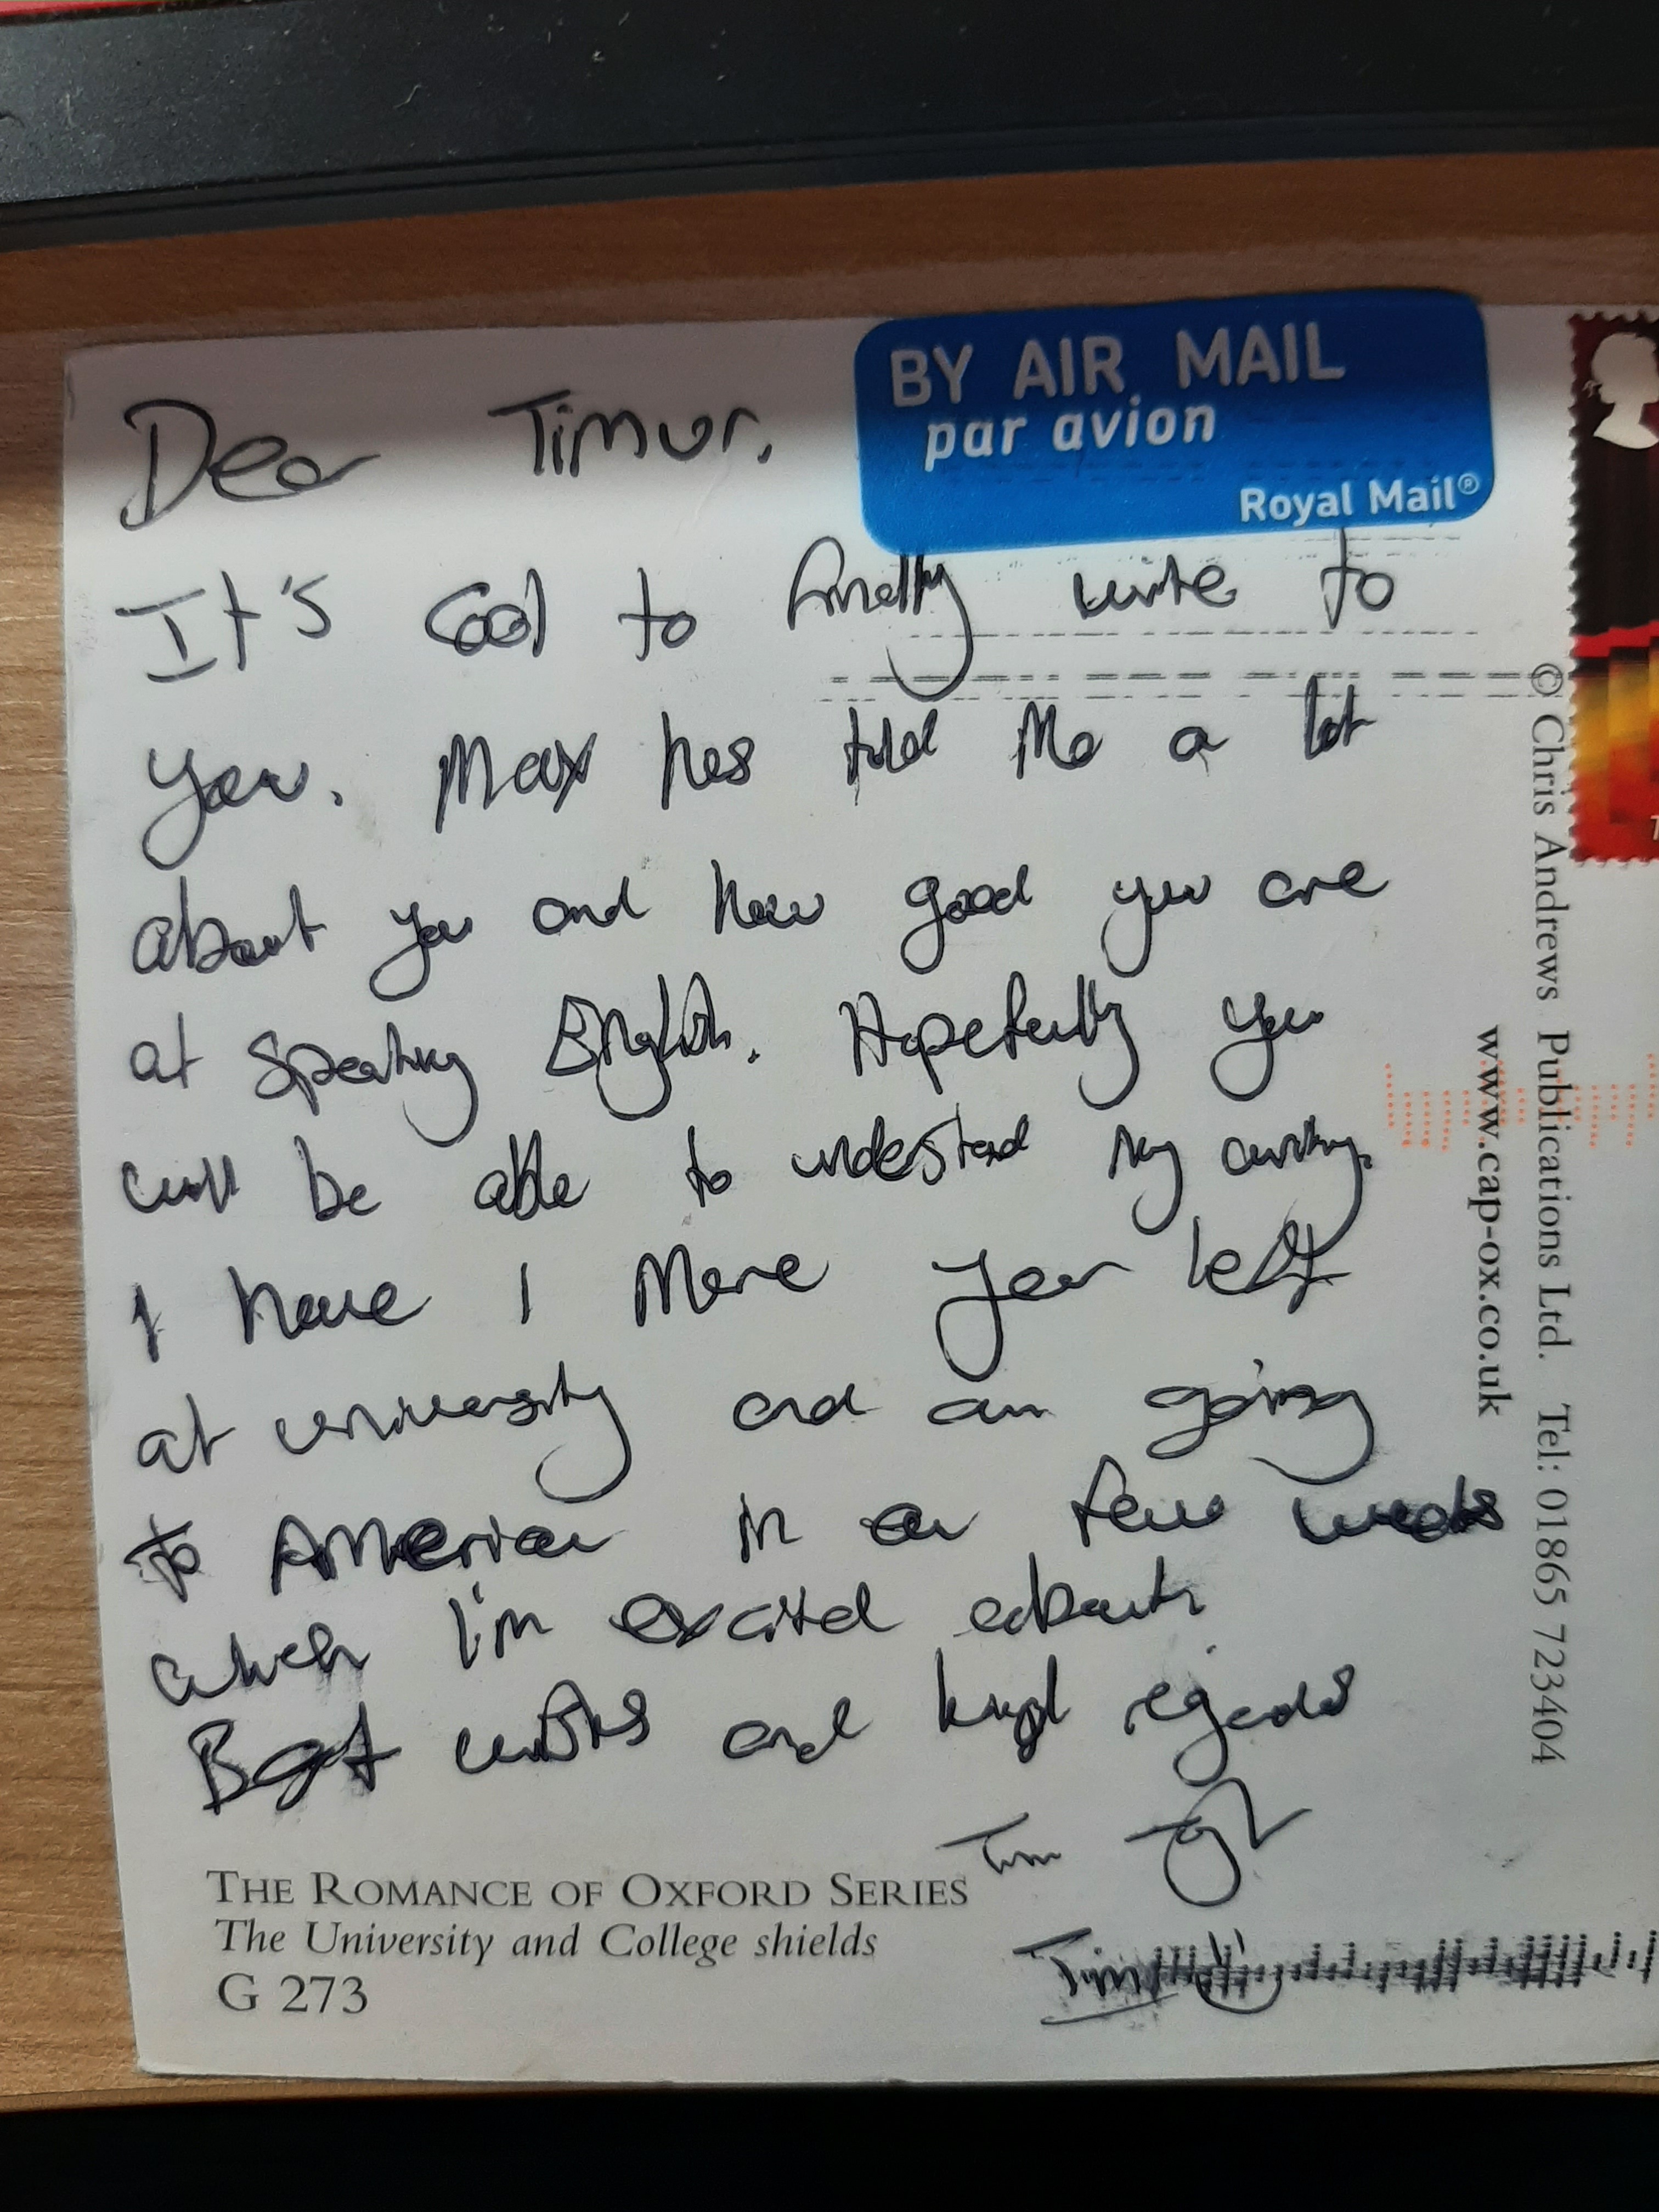 Dear Timur.
BY AIR MAIL
par avion
Royal Mail®
It's cool to finally write to
you. Max has told me a lot
about you and how good you are
at speaking English. Hopefully you
will be able to understand my writing.
I have 1 more year left
at university and am going
to America in a few weeks
which I'm excited about.
Best wishes and kind regards
Tim
Tim
THE ROMANCE OF OXFORD SERIES
The University and College shields
G 273
© Chris Andrews Publications Ltd. Tel: 01865 723404
www.cap-ox.co.uk